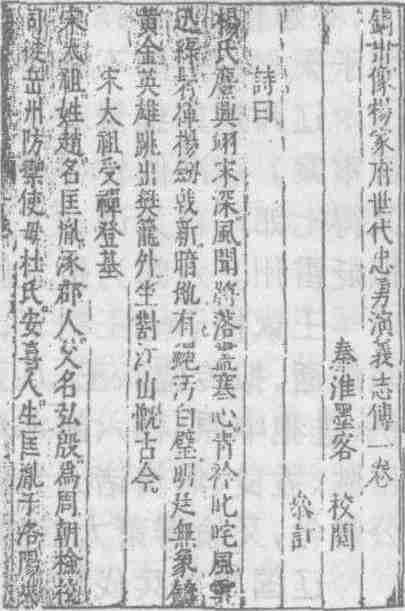 鐫出像楊家府世代忠勇演義志傳一卷
秦淮墨客 校閱
叅訂
詩曰
楊氏麼興翊宋深風聞將落盡寒心青衿叱咤風雲
迅絳幘揮揚劍戟新暗拋有汚白璧明廷無象鑄
黃金英雄跳出樊籠外坐對江山慨古今
宋太祖受禪登基
宋太祖姓趙名匡胤涿郡人父名弘殷爲周朝檢校
司徒岳州防禦使母杜氏安喜人生匡胤于洛陽